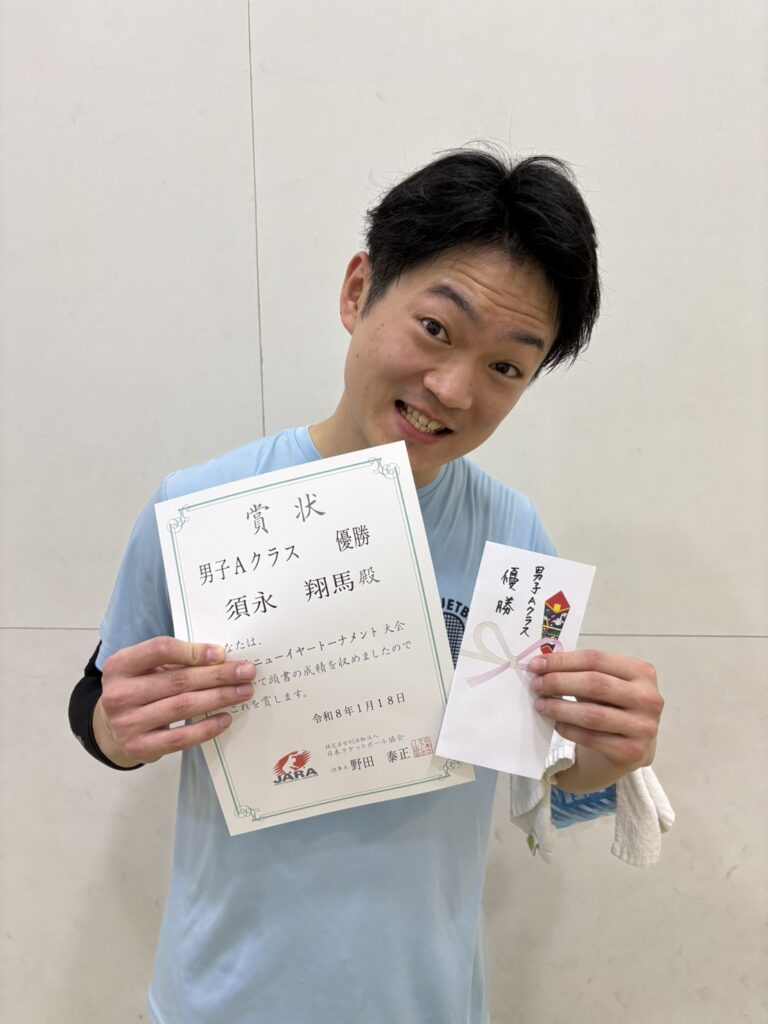 賞状
男子Aクラス 優勝
須永 翔馬殿
なたは、
ニューイヤートーナメント大会
いて頭書の成績を収めましたので
これを賞します。
令和8年1月18日
特定非営利活動法人
日本ラケットボール協会
理事長 野田 泰正
JARA
男子Aクラス
優勝